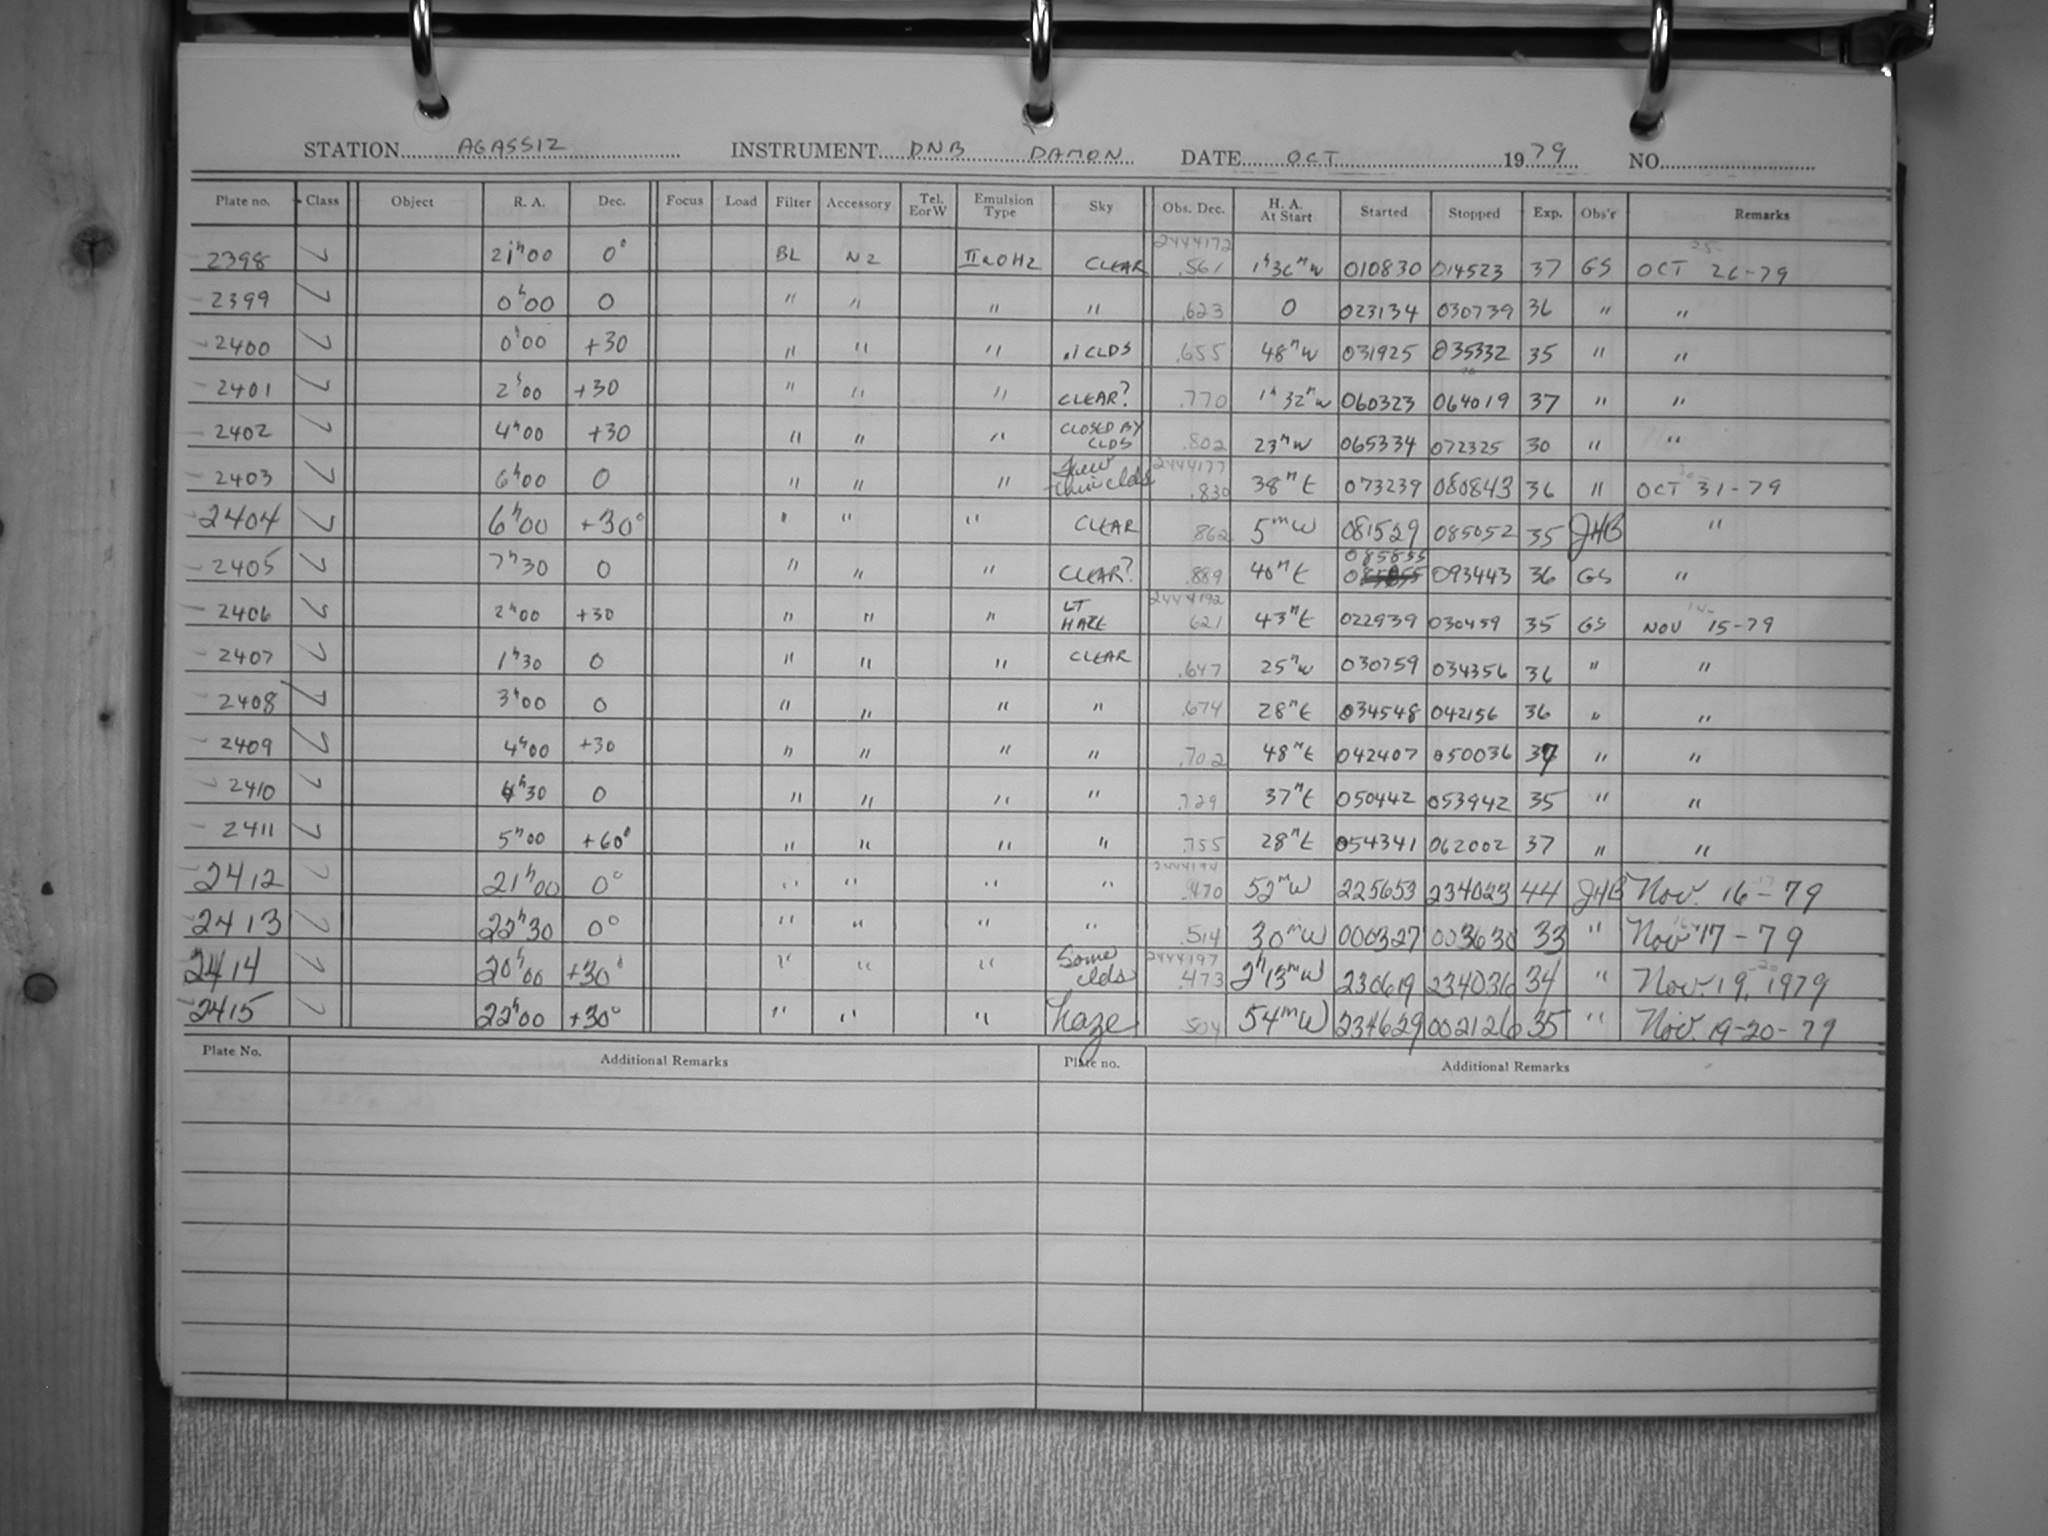 STATION AGASSIZ INSTRUMENT DNB DAMON DATE OCT 1979 NO.
Plate no. Class Object R. A. Dec. Focus Load Filter Accessory Tel. E or W Emulsion Type Sky Obs. Dec. H. A. At Start Started Stopped Exp. Obs'r Remarks
2398 7 21h00 0° BL N2 IIaOH2 CLEAR 2444172 .561 1h36mW 010830 014523 37 GS OCT 25- 26-79
2399 7 0h00 0 " " " " .623 0 023134 030739 36 " "
2400 7 0h00 +30 " " " .1 CLDS .655 48mW 031925 035332 35 " "
2401 7 2h00 +30 " " " CLEAR? .770 1h32mW 060323 064019 37 " "
2402 7 4h00 +30 " " " CLOSED BY CLDS .802 23mW 065334 072325 30 " "
2403 7 6h00 0 " " " few thin clds 2444177 .830 38mE 073239 080843 36 " OCT 31-79
2404 7 6h00 +30° " " " CLEAR .862 5mW 081529 085052 35 JHB "
2405 7 7h30 0 " " " CLEAR? .889 40mE 085855 093443 36 GS "
2406 7 2h00 +30 " " " LT HAZE 2444192 .621 43mE 022939 030459 35 GS NOV 14- 15-79
2407 7 1h30 0 " " " CLEAR .647 25mW 030759 034356 36 " "
2408 7 3h00 0 " " " " .674 28mE 034548 042156 36 " "
2409 7 4h00 +30 " " " " .702 48mE 042407 050036 37 " "
2410 7 4h30 0 " " " " .729 37mE 050442 053942 35 " "
2411 7 5h00 +60° " " " " .755 28mE 054341 062002 37 " "
2412 7 21h00 0° " " " " 2444194 .470 52mW 225653 234023 44 JHB Nov. 16-79
2413 7 22h30 0° " " " " .514 30mW 000327 003630 33 " Nov 17-79
2414 7 20h00 +30° " " " Some clds 2444197 .473 2h13mW 230619 234036 34 " Nov. 19, 1979
2415 7 22h00 +30° " " " haze .504 54mW 234629 002126 35 " Nov. 19-20-79
Plate No. Additional Remarks Plate no. Additional Remarks